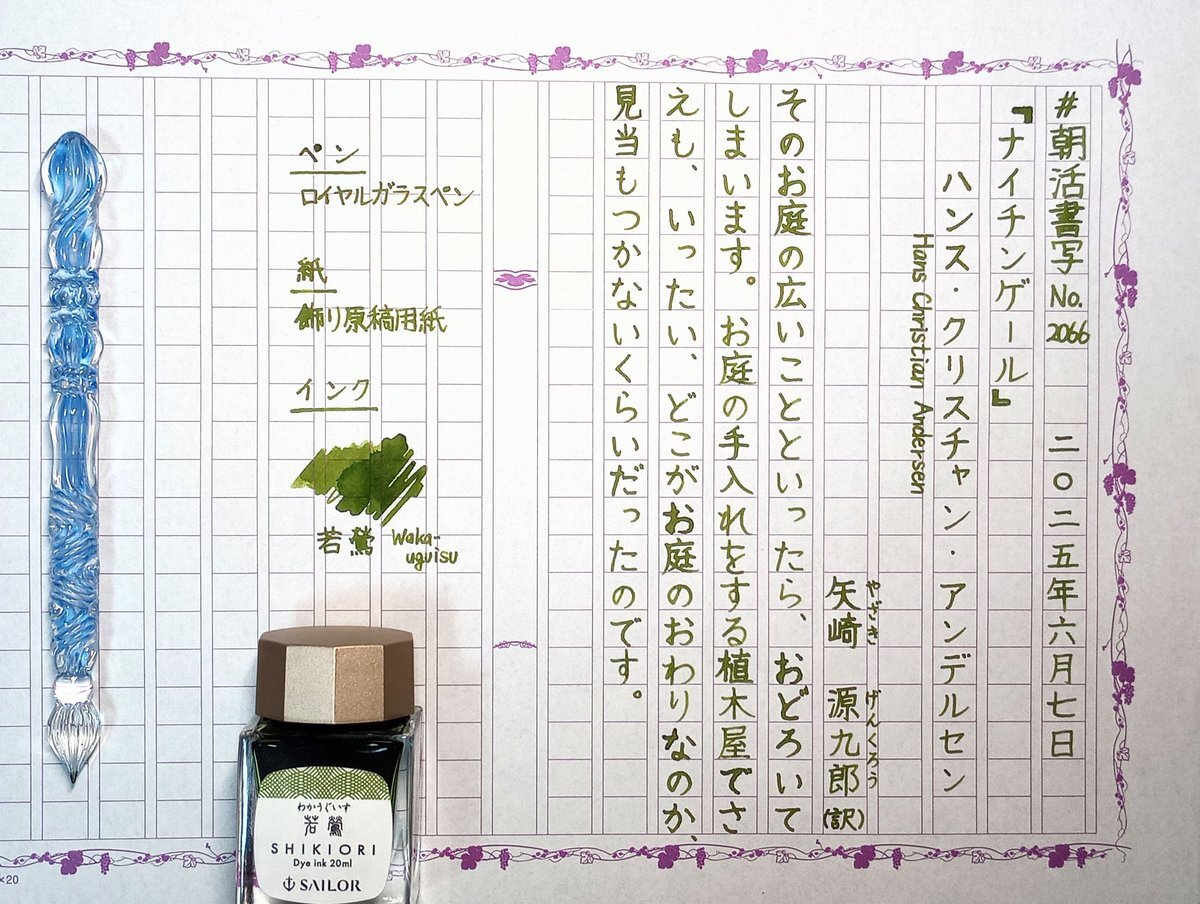 #朝活書写 No.2066 二〇二五年六月七日
『ナイチンゲール』
ハンス・クリスチャン・アンデルセン
Hans Christian Andersen
矢崎 源九郎(訳)
やざき げんくろう
そのお庭の広いことといったら、おどろいて
しまいます。お庭の手入れをする植木屋でさ
えも、いったい、どこがお庭のおわりなのか、
見当もつかないくらいだったのです。
ペン
ロイヤルガラスペン
紙
飾り原稿用紙
インク
若鶯 Waka-
uguisu
わかうぐいす
若鶯
SHIKIORI
Dye ink 20ml
SAILOR
×20